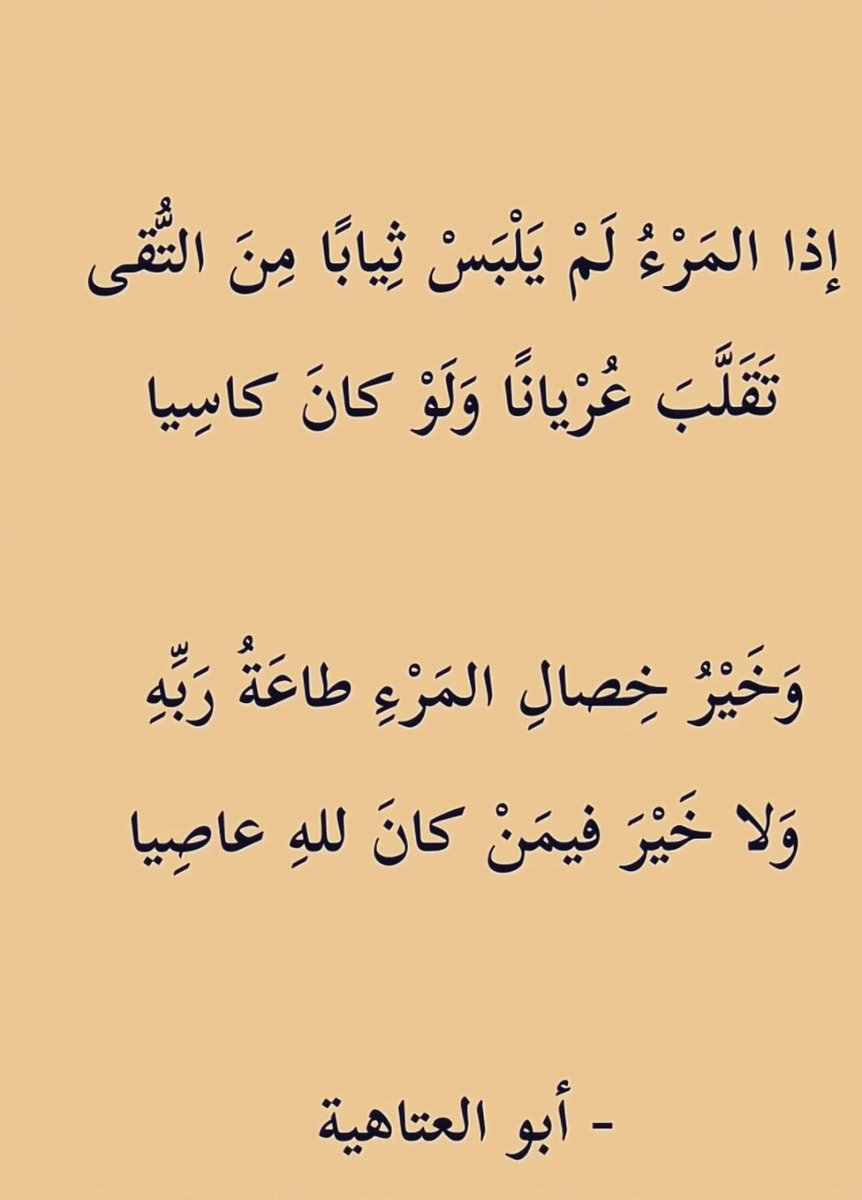 إذا المَرْءُ لَمْ يَلْبَسْ ثِيابًا مِنَ التُّقى
تَقَلَّبَ عُرْيانًا وَلَوْ كانَ كاسِيا
وَخَيْرُ خِصالِ المَرْءِ طاعَةُ رَبِّهِ
وَلا خَيْرَ فيمَنْ كانَ للهِ عاصِيا
- أبو العتاهية